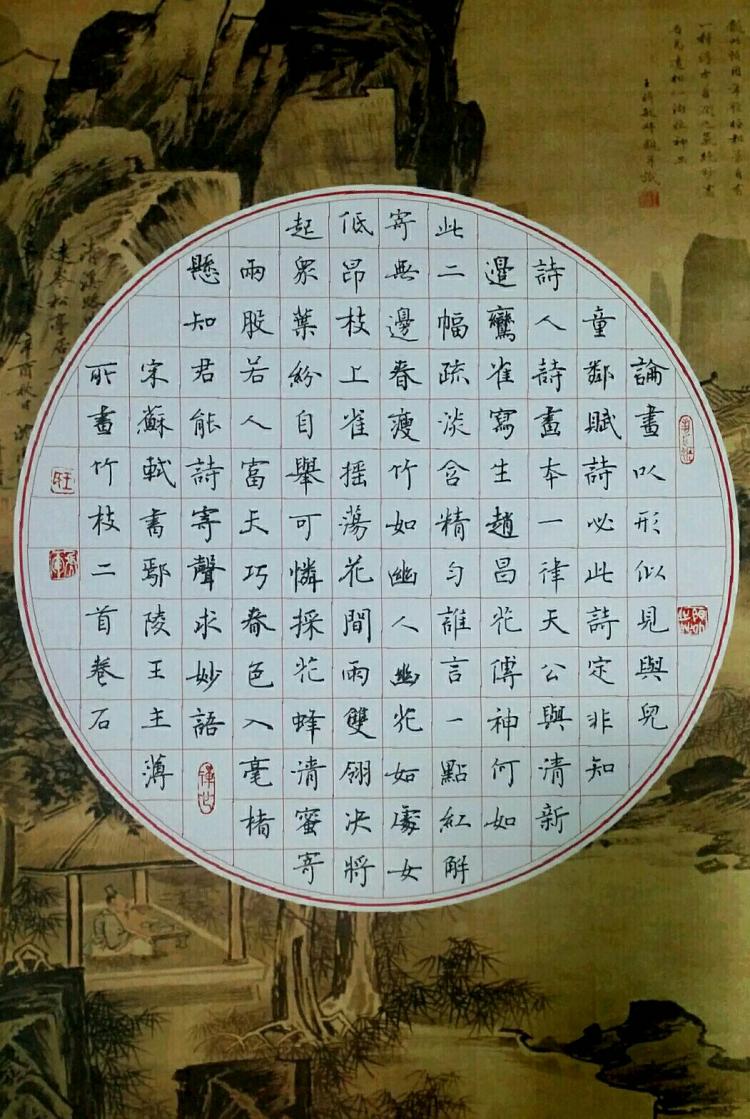 論畫以形似見與兒
童鄰賦詩必此詩定非知
詩人詩畫本一律天公與清新
邊鸞雀寫生趙昌花傳神何如
此二幅疏淡含精勻誰言一點紅解
寄無邊春瘦竹如幽人幽花如處女
低昂枝上雀搖蕩花間雨雙翎決將
起眾葉紛自舉可憐採花蜂清蜜寄
兩股若人富天巧春色入毫楮
懸知君能詩寄聲求妙語
宋蘇軾書鄢陵王主薄
所畫竹枝二首卷石